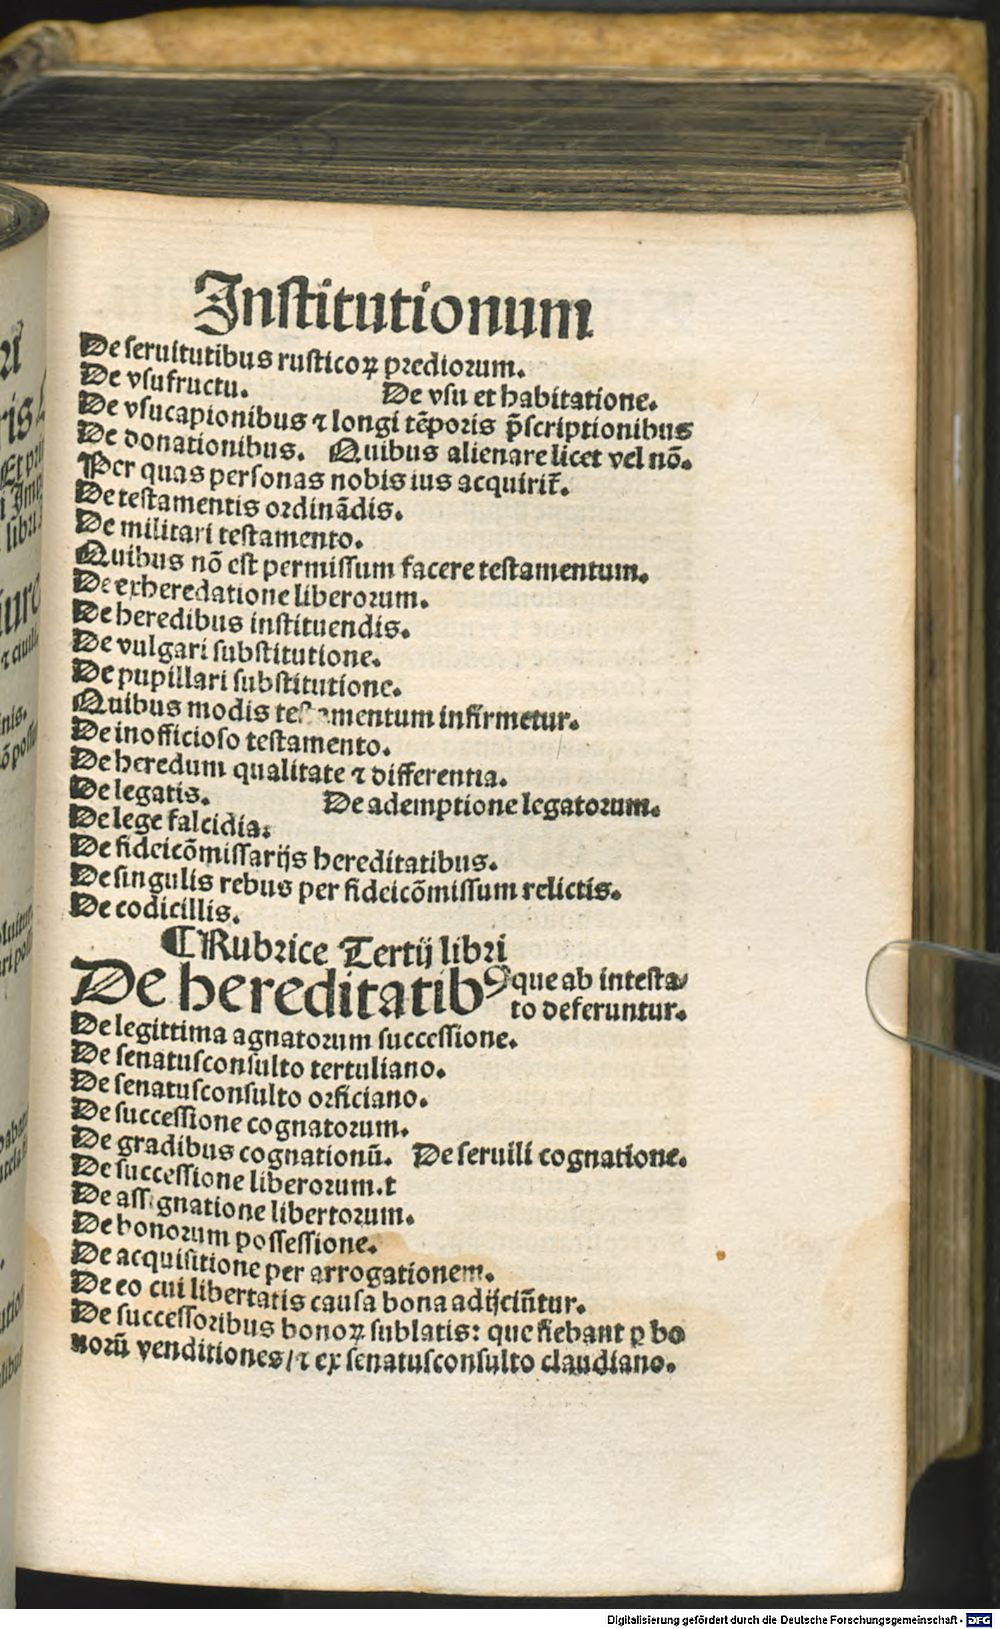 Institutionum
De seruitutibus rusticoꝝ prediorum.
De vsufructu. De vsu et habitatione.
De vsucapionibus ⁊ longi tẽporis p̃scriptionibus
De donationibus. Quibus alienare licet vel nõ.
Per quas personas nobis ius acquirit̃.
De testamentis ordinãdis.
De militari testamento.
Quibus nõ est permissum facere testamentum.
De exheredatione liberorum.
De heredibus instituendis.
De vulgari substitutione.
De pupillari substitutione.
Quibus modis testamentum infirmetur.
De inofficioso testamento.
De heredum qualitate ⁊ differentia.
De legatis. De ademptione legatorum.
De lege falcidia.
De fideicõmissarijs hereditatibus.
De singulis rebus per fideicõmissum relictis.
De codicillis.
¶ Rubrice Tertij libri
De hereditatibꝰ que ab intesta-
to deferuntur.
De legittima agnatorum successione.
De senatusconsulto tertuliano.
De senatusconsulto orficiano.
De successione cognatorum.
De gradibus cognationũ. De seruili cognatione.
De successione liberorum.t
De assignatione libertorum.
De bonorum possessione.
De acquisitione per arrogationem.
De eo cui libertatis causa bona adijciũtur.
De successoribus bonoꝝ sublatis: que fiebant ꝑ bo
norũ venditiones/⁊ ex senatusconsulto claudiano.
Digitalisierung gefördert durch die Deutsche Forschungsgemeinschaft - DFG